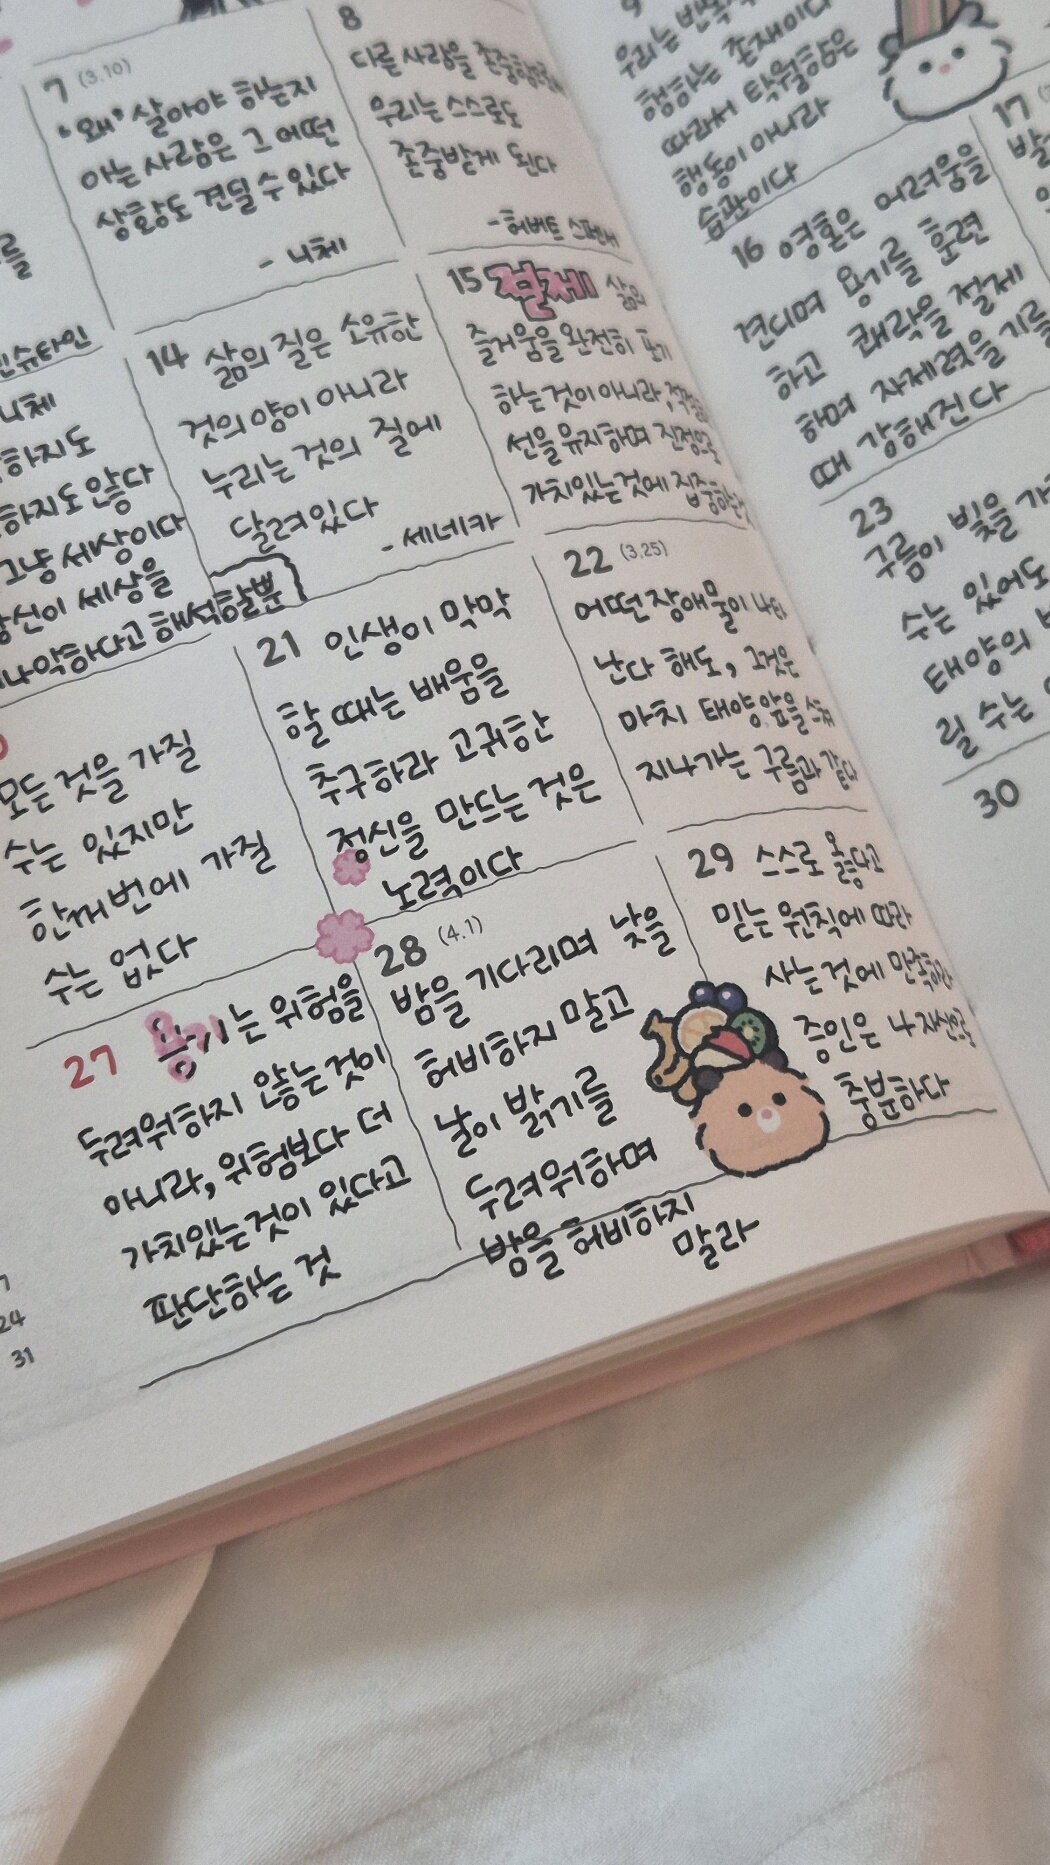 7 (3.10)
"왜" 살아야 하는지
아는 사람은 그 어떤
상황도 견딜 수 있다
- 니체
8
다른 사람을
우리는 스스로도
존중받게 된다
- 허버트 스펜서
를
니체
하지도
하지도 않다
그냥 세상이다
당신이 세상을
나약하다고 해석할뿐
14 삶의 질은 소유한
것의 양이 아니라
누리는 것의 질에
달려있다
- 세네카
15 절제 삶의
즐거움을 완전히 포기
하는 것이 아니라,
선을 유지하며
가치있는 것에
모든 것을 가질
수는 있지만
한꺼번에 가질
수는 없다
21 인생이 막막
할 때는 배움을
추구하라 고귀한
정신을 만드는 것은
노력이다
22 (3.25)
어떤 장애물이 나타
난다 해도, 그것은
마치 태양 앞을
지나가는 구름과 같다
27 용기는 위험을
두려워하지 않는 것이
아니라, 위험보다 더
가치있는 것이 있다고
판단하는 것
28 (4.1)
밤을 기다리며 낮을
허비하지 말고
날이 밝기를
두려워하며
밤을 허비하지
말라
29 스스로 옳다고
믿는 원칙에 따라
사는 것에
증인은
충분하다
7
24
31
9
우리는
행하는 존재이다
따라서 탁월함은
행동이 아니라
습관이다
16 영혼은 어려움을
견디며 용기를 훈련
하고 쾌락을 절제
하며 자제력을 기를
때 강해진다
17
23
구름이 빛을
수는 있어도
태양의
릴 수는
30